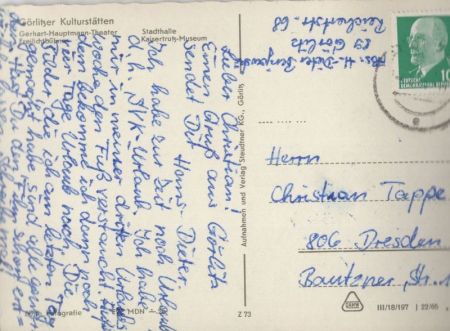 Görlitzer Kulturstätten
Gerhart-Hauptmann-Theater
Stadthalle
Freilichtbühne
Kaisertrutz-Museum
Lieber Christian!
Einen Gruß aus Görlitz
sendet Dir
Hans-Dieter.
Ich habe zur Zeit noch Urlaub
d.h. SVK-Urlaub. Ich habe
mir in meiner dritten Urlaubs-
woche den Fuß verstaucht und
nun bekomme ich dann noch
vier Tage Urlaub nach. Die
Bilder, die ich am letzten Tag
gemacht habe sind alle
Hast Du
Abs. H.-Dieter
89 Görlitz
Reichertstr. 68
10
Herrn
Christian Tappe
806 Dresden
Bautzner Str.
Aufnahmen und Verlag Steudtner KG., Görlitz
MDN
Z 73
III/18/197 | 22/65